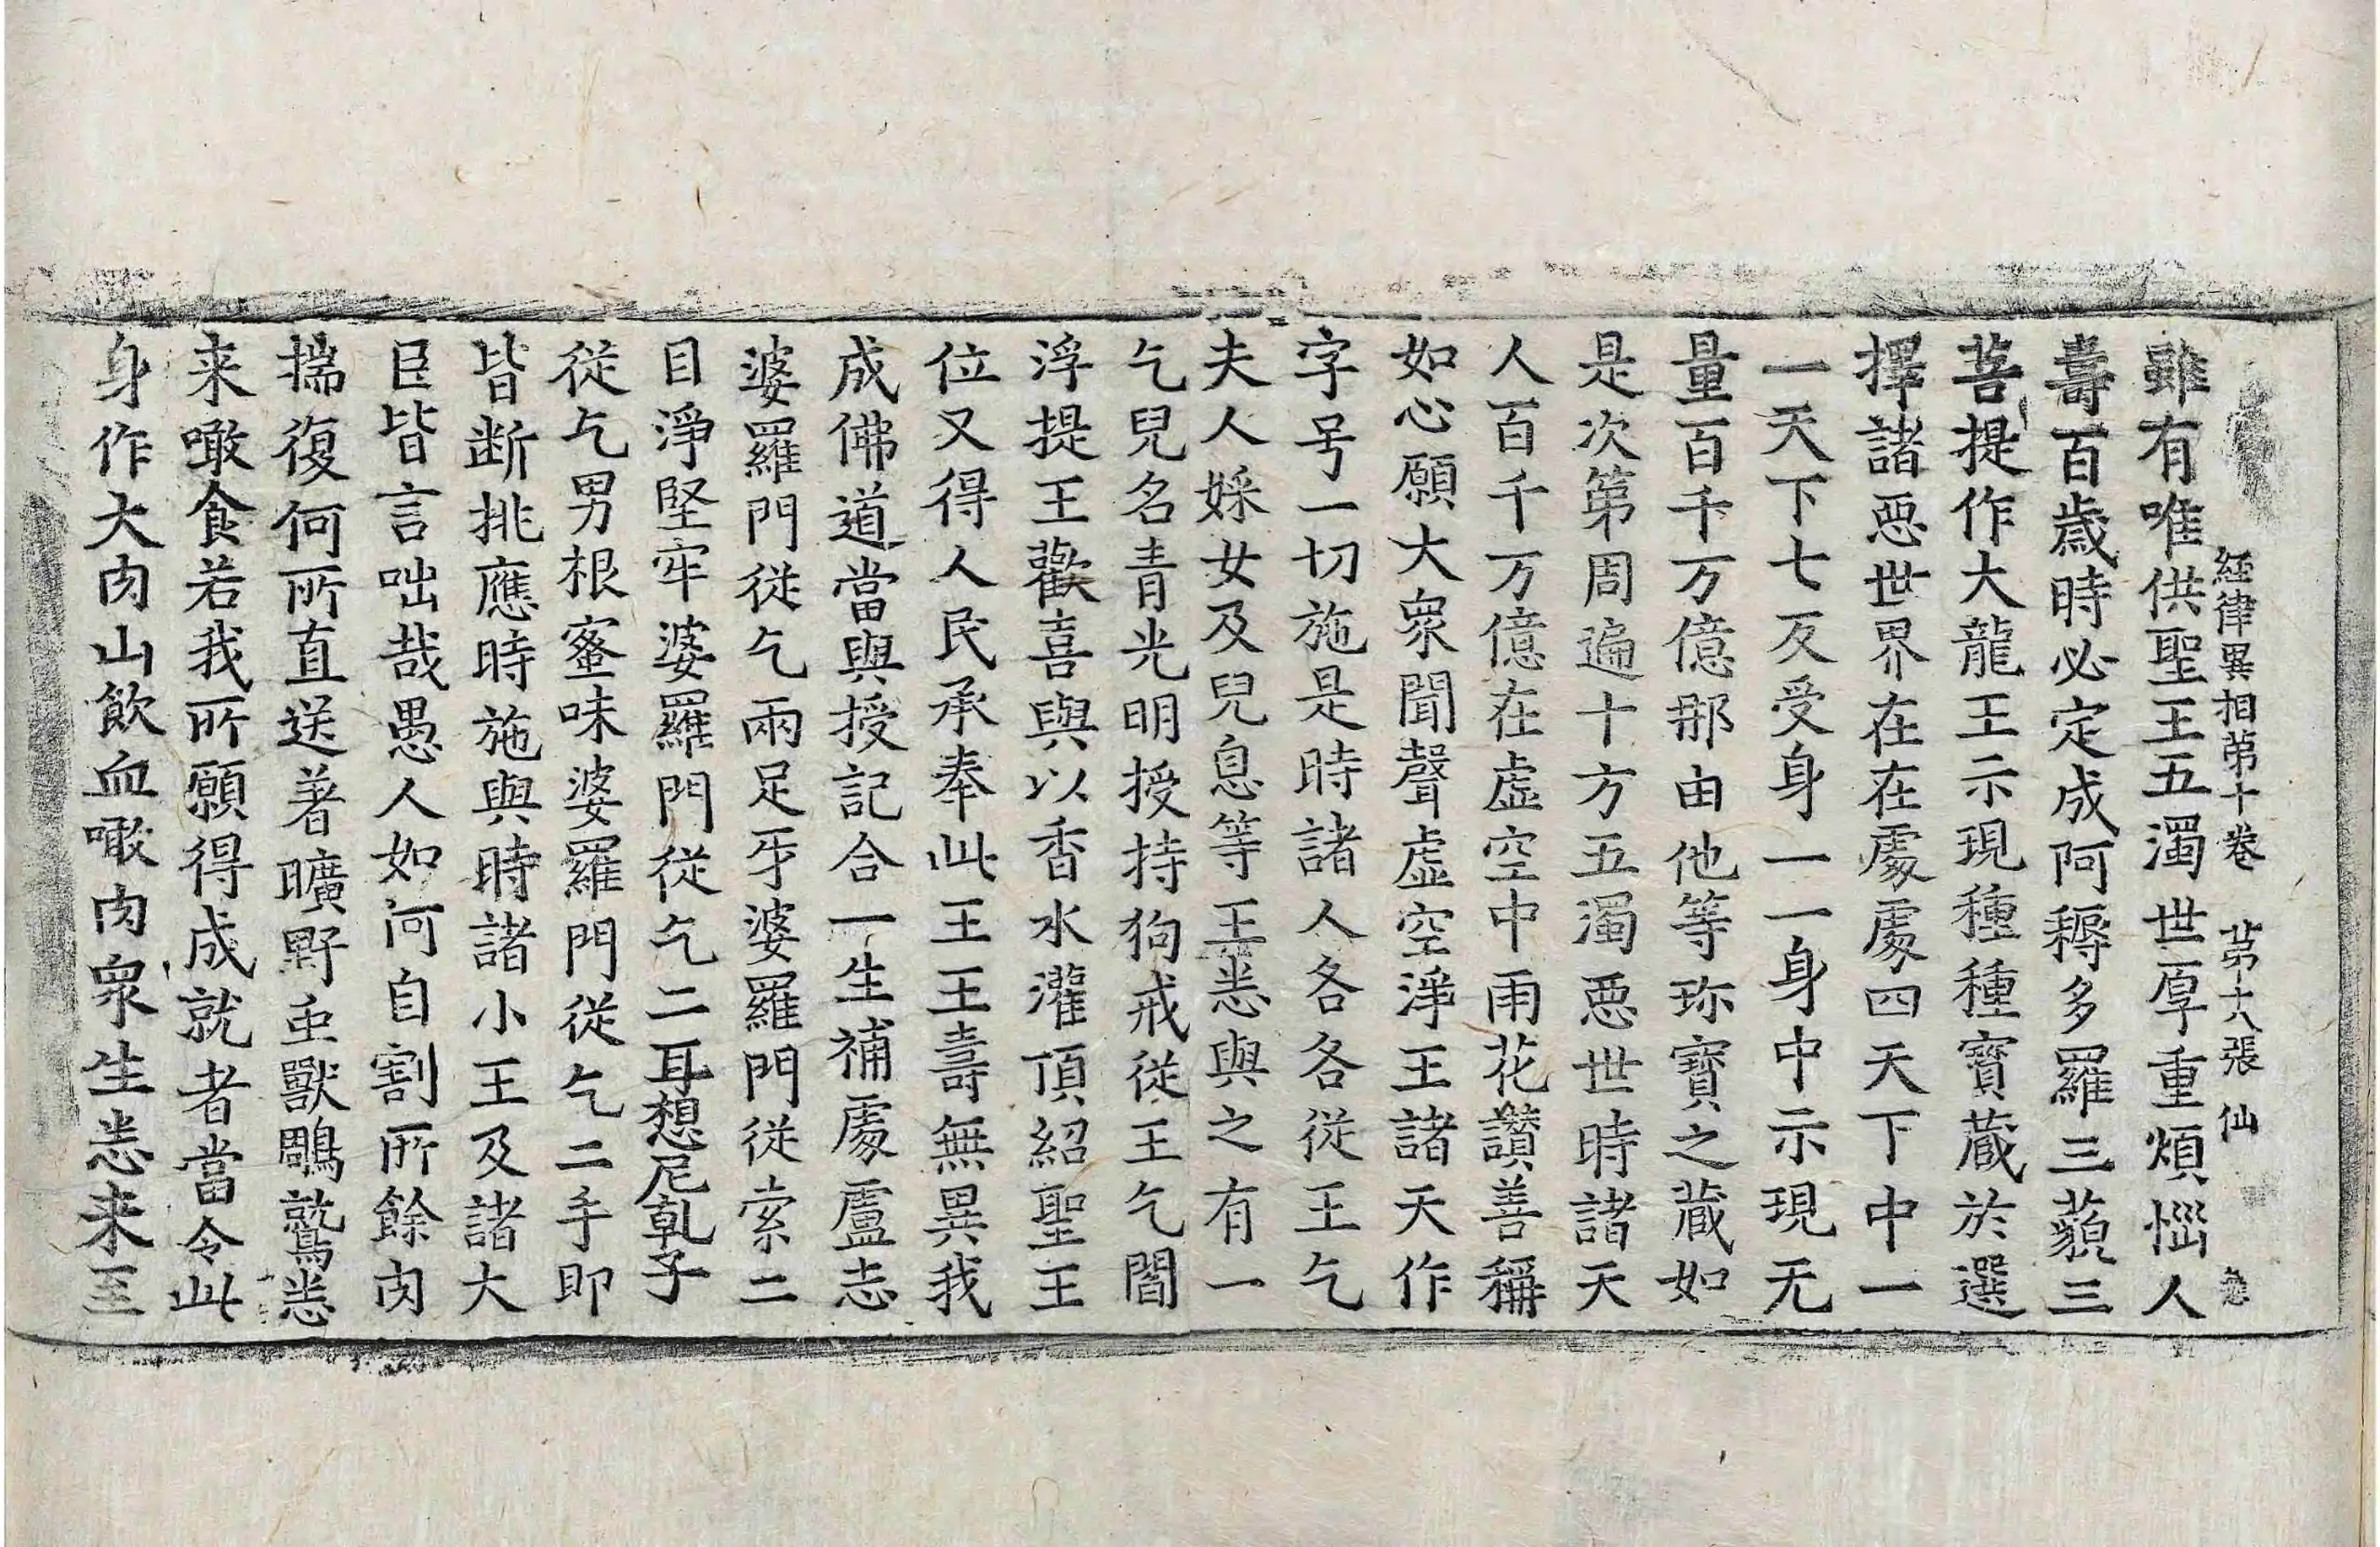 経律異相第十卷 第十八張 仙
雖有唯供聖王五濁世厚重煩惱人
壽百歲時必定成阿耨多羅三藐三
菩提作大龍王示現種種寶藏於選
擇諸惡世界在在處處四天下中一
一天下七反受身一一身中示現无
量百千万億那由他等珎寶之藏如
是次第周遍十方五濁惡世時諸天
人百千万億在虛空中雨花讃善稱
如心願大衆聞聲虛空淨王諸天作
字号一切施是時諸人各各從王乞
夫人婇女及兒息等王悉與之有一
乞兒名青光明授持狗戒從王乞閻
浮提王歡喜與以香水灌頂紹聖王
位又得人民承奉此王王壽無異我
成佛道當與授記合一生補處盧志
婆羅門從乞兩足牙婆羅門從索二
目淨堅牢婆羅門從乞二耳想尼乹子
從乞男根蜜味婆羅門從乞二手即
皆断挑應時施與時諸小王及諸大
臣皆言咄哉愚人如何自割所餘肉
揣復何所直送著曠野䖝獸鵰鷲悉
来噉食若我所願得成就者當令此
身作大肉山飲血噉肉衆生悉来至